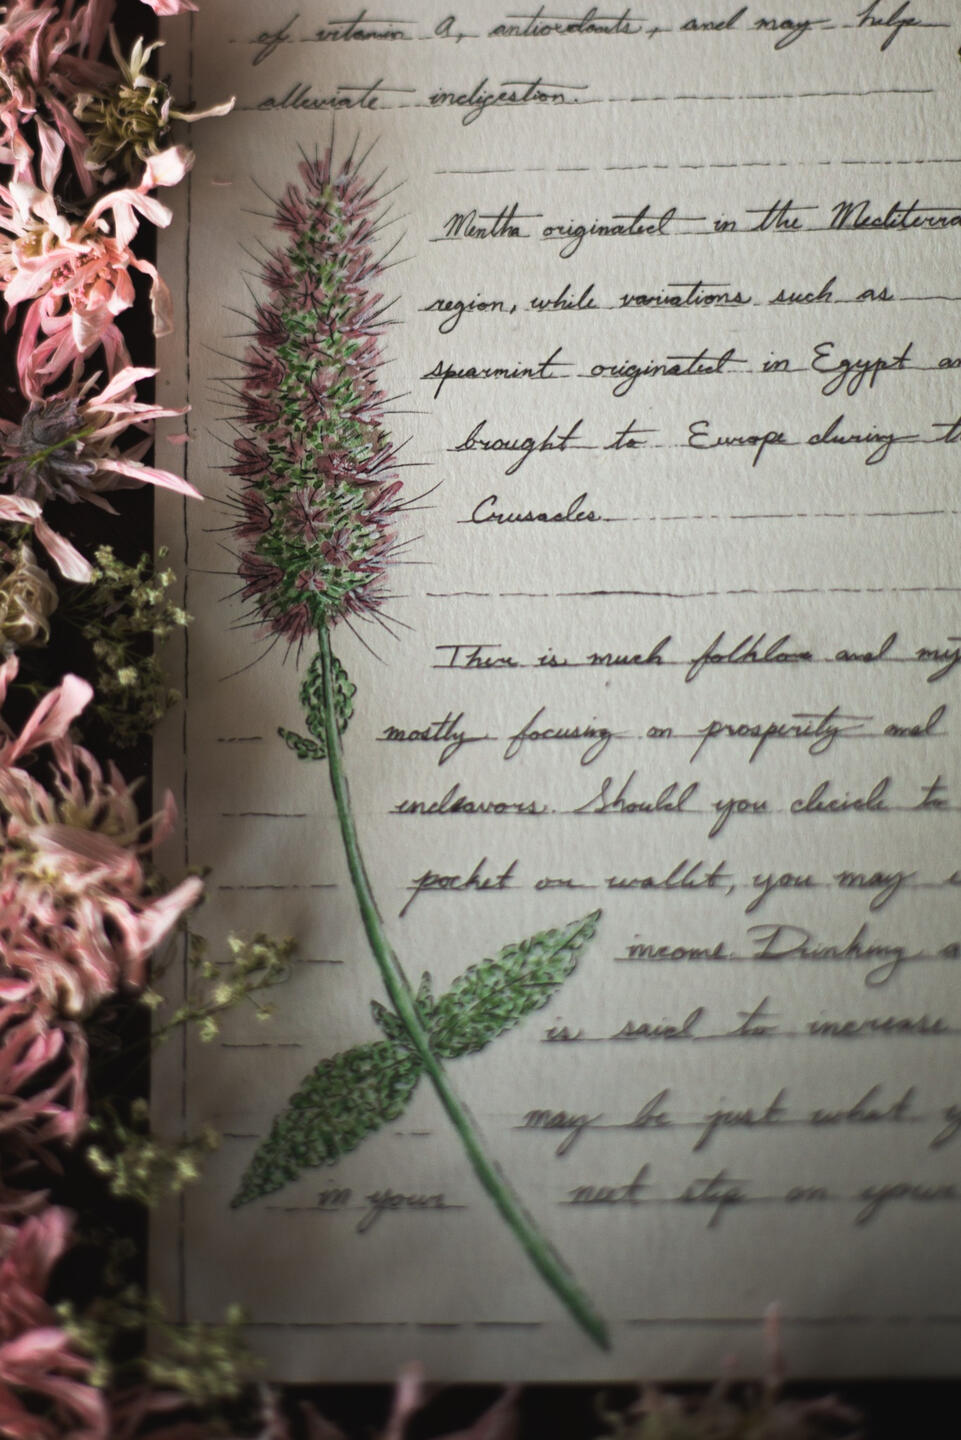 of vitamin A, antioxidants, and may help
alleviate indigestion.
Mentha originated in the Mediterra
region, while variations such as
spearmint originated in Egypt an
brought to Europe during t
Crusades.
There is much folklore and my
mostly focusing on prosperity and
endeavors. Should you decide to
pocket or wallet, you may
income. Drinking a
is said to increase
may be just what y
in your next step on your